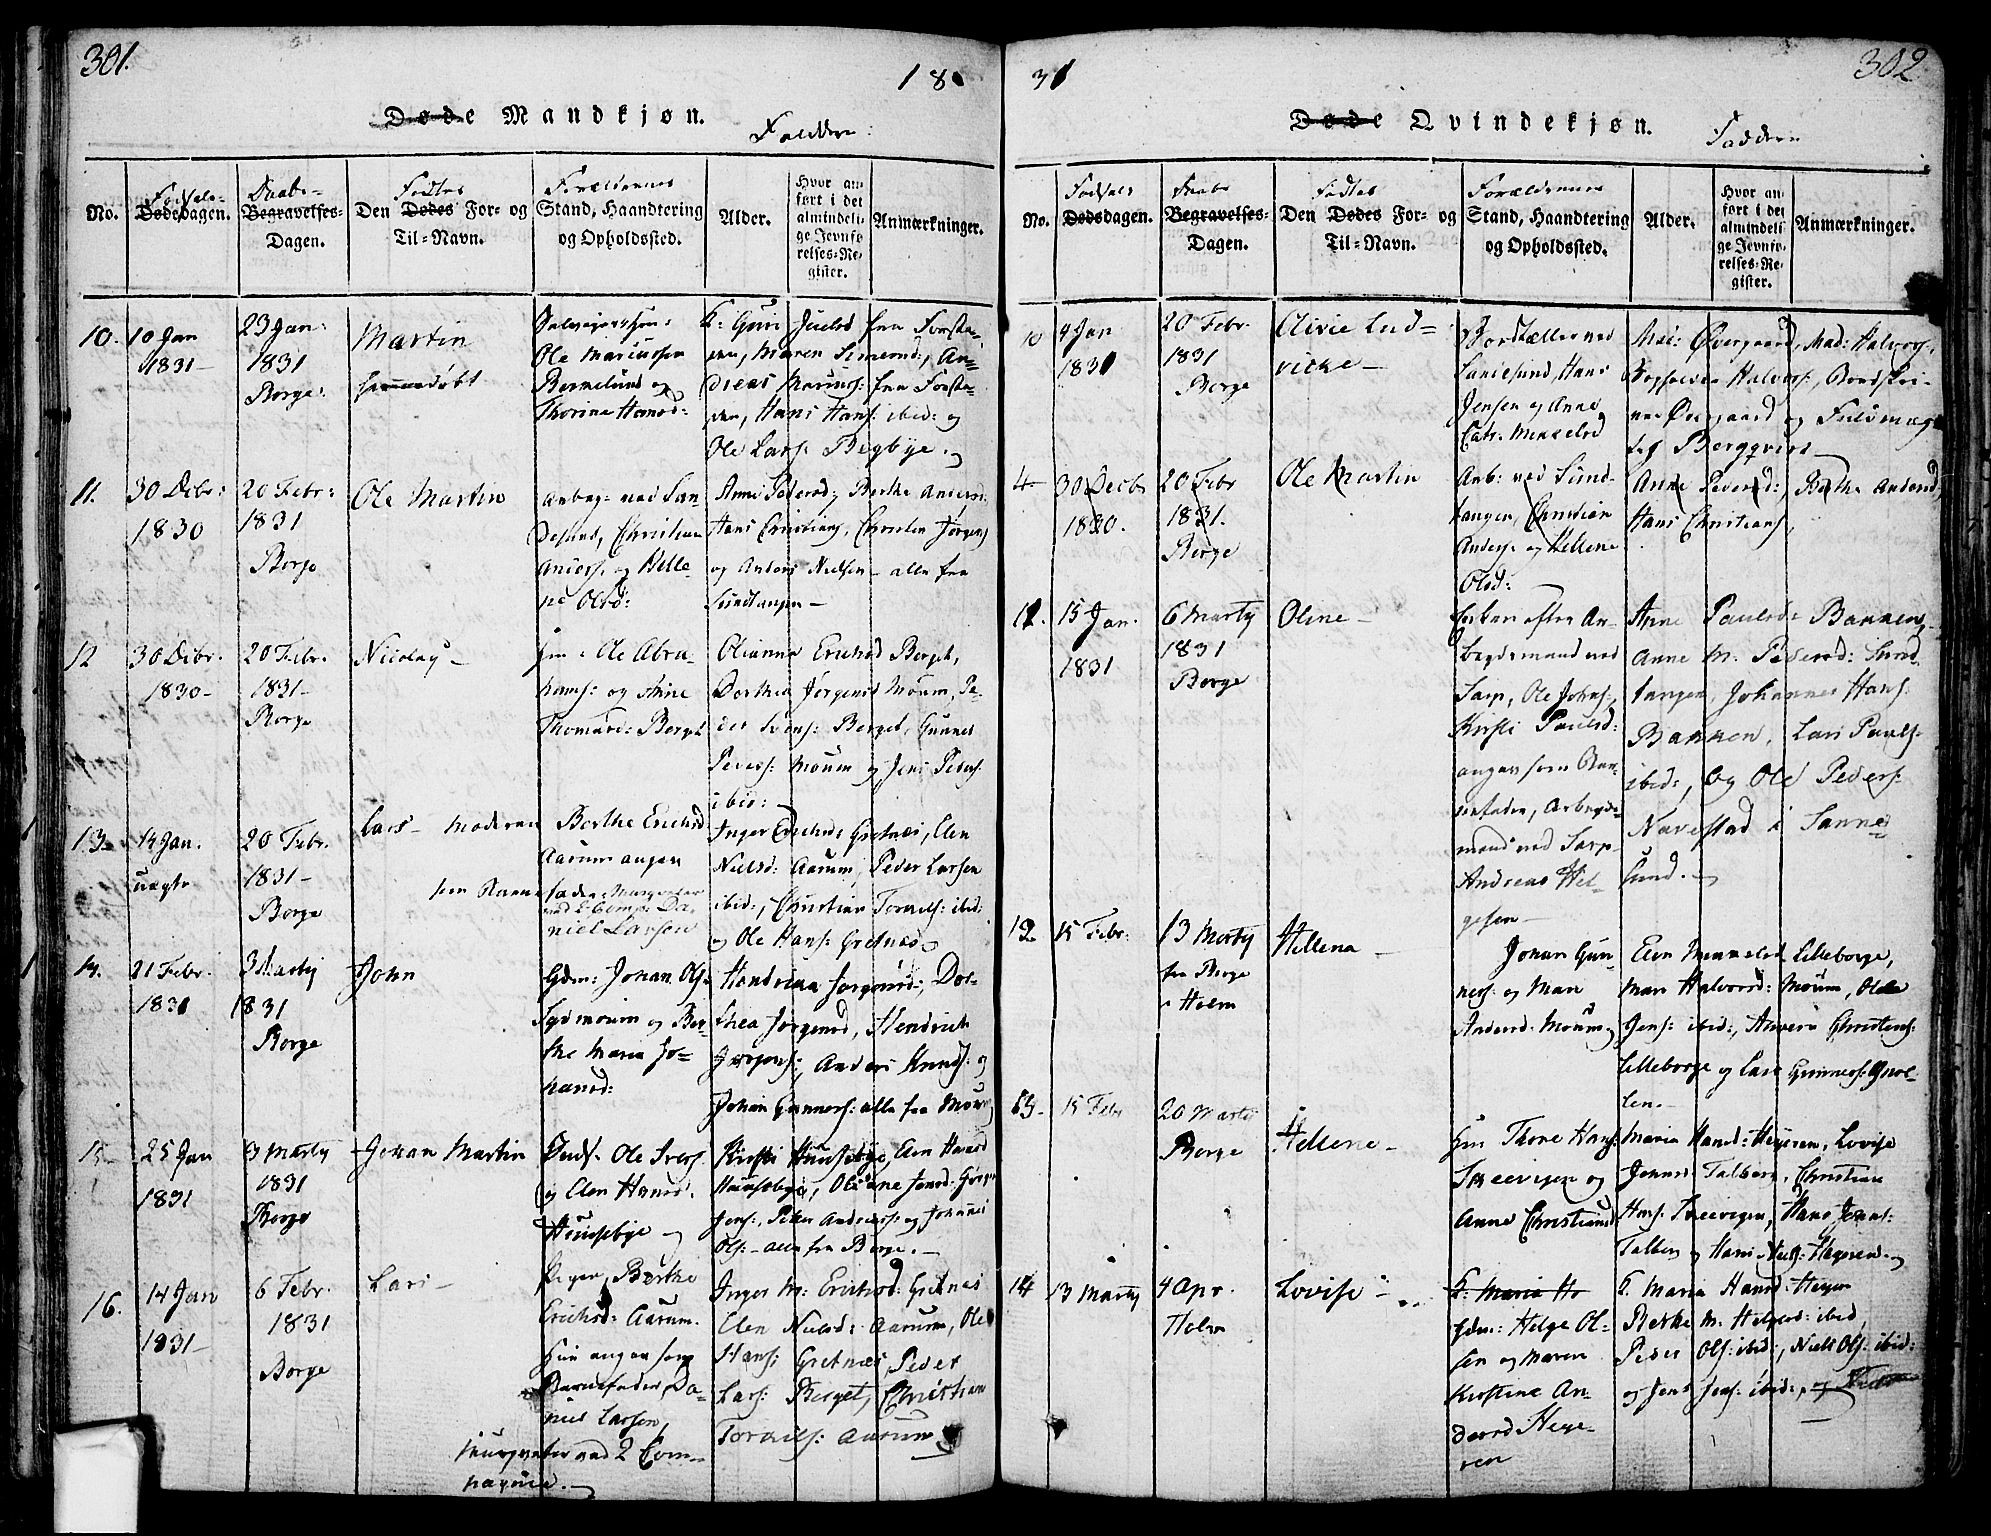 301.
18
Døde Mandkjøn.
Faddere
No.
Fødsels-
Døde Dagen.
Daabs-
Begravelses-
Dagen.
Fødtes
Den Dødes For- og
Til-Navn.
Forældrenes
Stand, Haandtering
og Opholdssted.
Alder.
Hvor an-
ført i det
almindeli-
ge Jevnfø-
relses-Re-
gister.
Anmærkninger.
10. 10 Jan
1831-
23 Jan:
1831
Borge:
Martin
hjemmedøbt
Ole Mariussen
Bornelund og
Thorine Hansd:
F: Guri Juelsd fra Torste-
en, Maren Simensd:, An-
dreas Mariuss: fra Torste-
en, Hans Hans: ibid: og
Ole Lars: Begbye.
11. 30 Debr:
1830
20 Febr:
1831
Borge
Ole Martin
Arbeg: ved San-
desund, Christian
Anders: og Helle-
ne Olsd:
Anne Pedersd; Berthe Andersd:
Hans Christians, Christen Jørgens
og Anders Nielsen - alle fra
Sundtangen-
12 30 Debr.
1830-
20 Febr.
1831-
Borge
Nicolay-
Ole Abra-
hams: og Anne
Thomasd: Berget
Olianna Ericksd Berget,
Dorthea Jørgensd Moum, Pe-
der Svens: Berget, Gunner
Peders: Moum og Jens Peders:
ibid:
13- 14 Jan.
uægte
20 Febr.
1831-
Borge
Lars- Moderen Berthe Ericksd
Aarum angav
som Barnefader
ved 2 Comp: Da-
niel Larsen
Inger Ericksd: Gretnæs, Elen
Nielsd: Aarum, Peder Larsen
ibid:, Christian Torkels: ibid:
og Ole Hans: Gretnæs
14. 21 Febr.
1831
3 Martij
1831
Borge
John
Gdm: Johan Ols:
Sydmoum og Ber-
the Maria Jo-
hansd:
Hendrikka Jørgensd:, Dor-
thea Jørgensd, Hendrick
Jørgens:, Anders Knuds: og
Johan Gunners: alle fra Moum
15- 25 Jan
1831
13 Martij
1831
Borge
Johan Martin
Inds. Ole Svers.
og Elen Hansd.
Hunsebye
Kirsti Hunsebye, Elen Hansd
Hunsebye, Oliane Jensd:
Jens:, Peter Anders: og Johannes
Ols:- alle fra Borge.-
16. 14 Jan
1831-
6 Febr.
1831
Borge
Lars-
Pigen Berthe
Ericksd: Aarum.
Hun angav som
Barnefader Da-
niel Larsen,
Musqueter ved 2 Com-
pagnie.-
Inger M: Ericksd: Gretnes
Elen Nielsd: Aarum, Ole
Hans: Gretnæs Peder
Lars: Berget, Christian
Torkils: Aarum
31
302
Døde Qvindekjøn.
Faddere
No.
Fødsels
Dødsdagen.
Daabs
Begravelses-
Dagen.
Fødtes
Den Dødes For- og
Til-Navn.
Forældrenes
Stand, Haandtering
og Opholdssted.
Alder.
Hvor an-
ført i det
almindeli-
ge Jevnfø-
relses-Re-
gister.
Anmærkninger.
10 4 Jan
1831
20 Febr.
1831
Borge
Olivie Lud-
vicke-
Bordtæller ved
Sandesund, Hans
Jensen og Anne
Cath: Mikkelsd
Mad: Øvergaard, Mad: Halvors:,
Halvors:, Bordskri-
ver Øvergaard og Fuldmæg-
tig Bergqvist-
4- 30 Decbr
1830.
20 Febr
1831.
Borge
Ole Martin
Arb: ved Sund-
tangen, Christian
Anders: og Hellene
Olsd:
Anne Pedersd:, Berthe Andersd,
Hans Christians,
11. 15 Jan.
1831
6 Martij
1831
Borge
Oline-
Enken efter Ar-
beydsmand ved
Sarp, Ole Johns:,
Kirsti Paulsd:
angav som Bar-
nefader, Arbeyds-
mand ved Sarp
Andreas Hel-
gesen-
Anne Paulsd: Bakken,
Anne M. Pedersd: Sund-
tangen, Johannes Hans:
Bakken, Lars Pauls:
ibid:, og Ole Peders:
Navestad i Sanne-
sund.-
12. 15 Febr:
13 Martij
fra Borge
i Holm
Hellena-
Johan Gun-
ners: og Mari
Andersd. Moum
Elen Mikkelsd Lilleborge,
Mari Halvorsd: Moum, Ole
Jens: ibid:, Anders Christens:
Lilleborge og Lars Gunners:
len.-
13- 15 Febr
20 Martij
Borge
Hellene-
Thore Hans:
Treevigen og
Anne Christiansd
Maria Hansd: Hegeren, Lovise
Jensd Talberg, Christian
Hans: Treevigen, Hans Jens:
Talberg og Hans Niels: Hegeren
14 13 Martij
4 Apr.
Holm
Lovise-
F: Maria Ho
Gdm: Helge Ol-
sen og Maren
Kirstine An-
dersd Hege-
ren
F. Maria Hansd: Hegeren
Berthe M: Helgesd: ibid,
Peder Ols: ibid:, Niels Ols: ibid:
og Jens Jens: ibid: